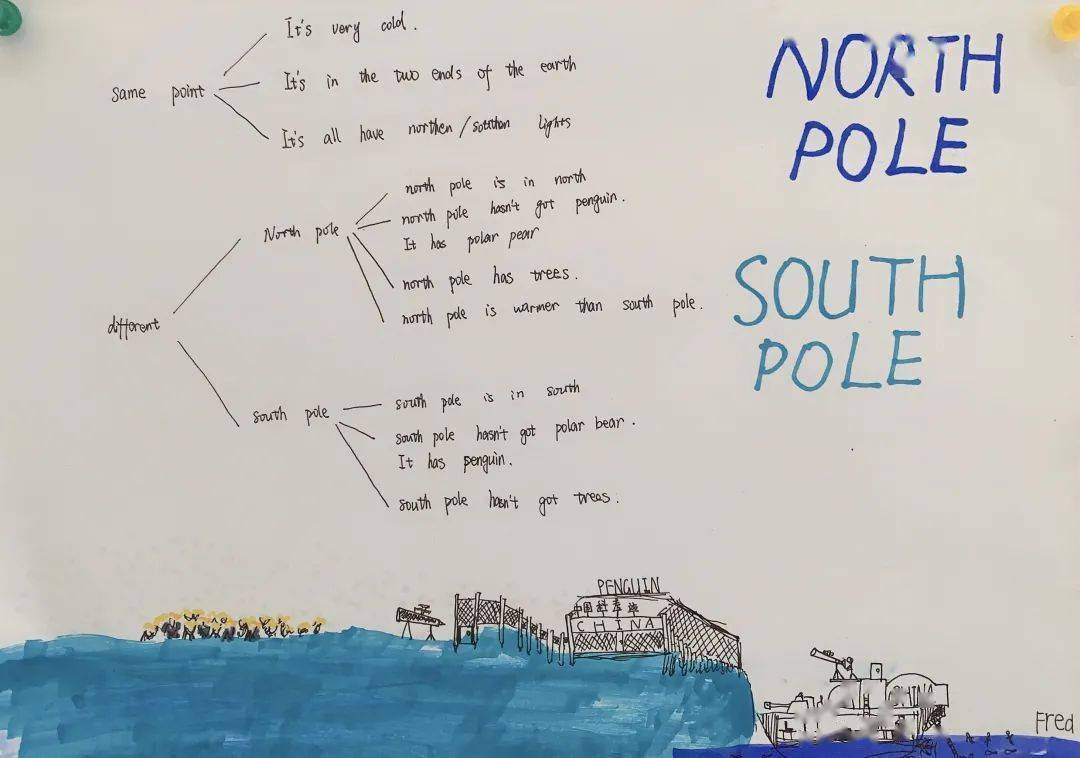 It's very cold.
same point
It's in the two ends of the earth
It's all have northen/southon lights
NORTH
POLE
north pole is in north
north pole hasn't got penguin.
North pole
It has polar pear
north pole has trees.
north pole is warmer than south pole.
different
SOUTH
POLE
south pole is in south
south pole
south pole hasn't got polar bear.
It has penguin.
south pole hasn't got trees.
PENGUIN
中国科考站
CHINA
CHINA
Fred